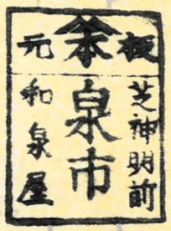 板元
芝神明前
泉市
和泉屋